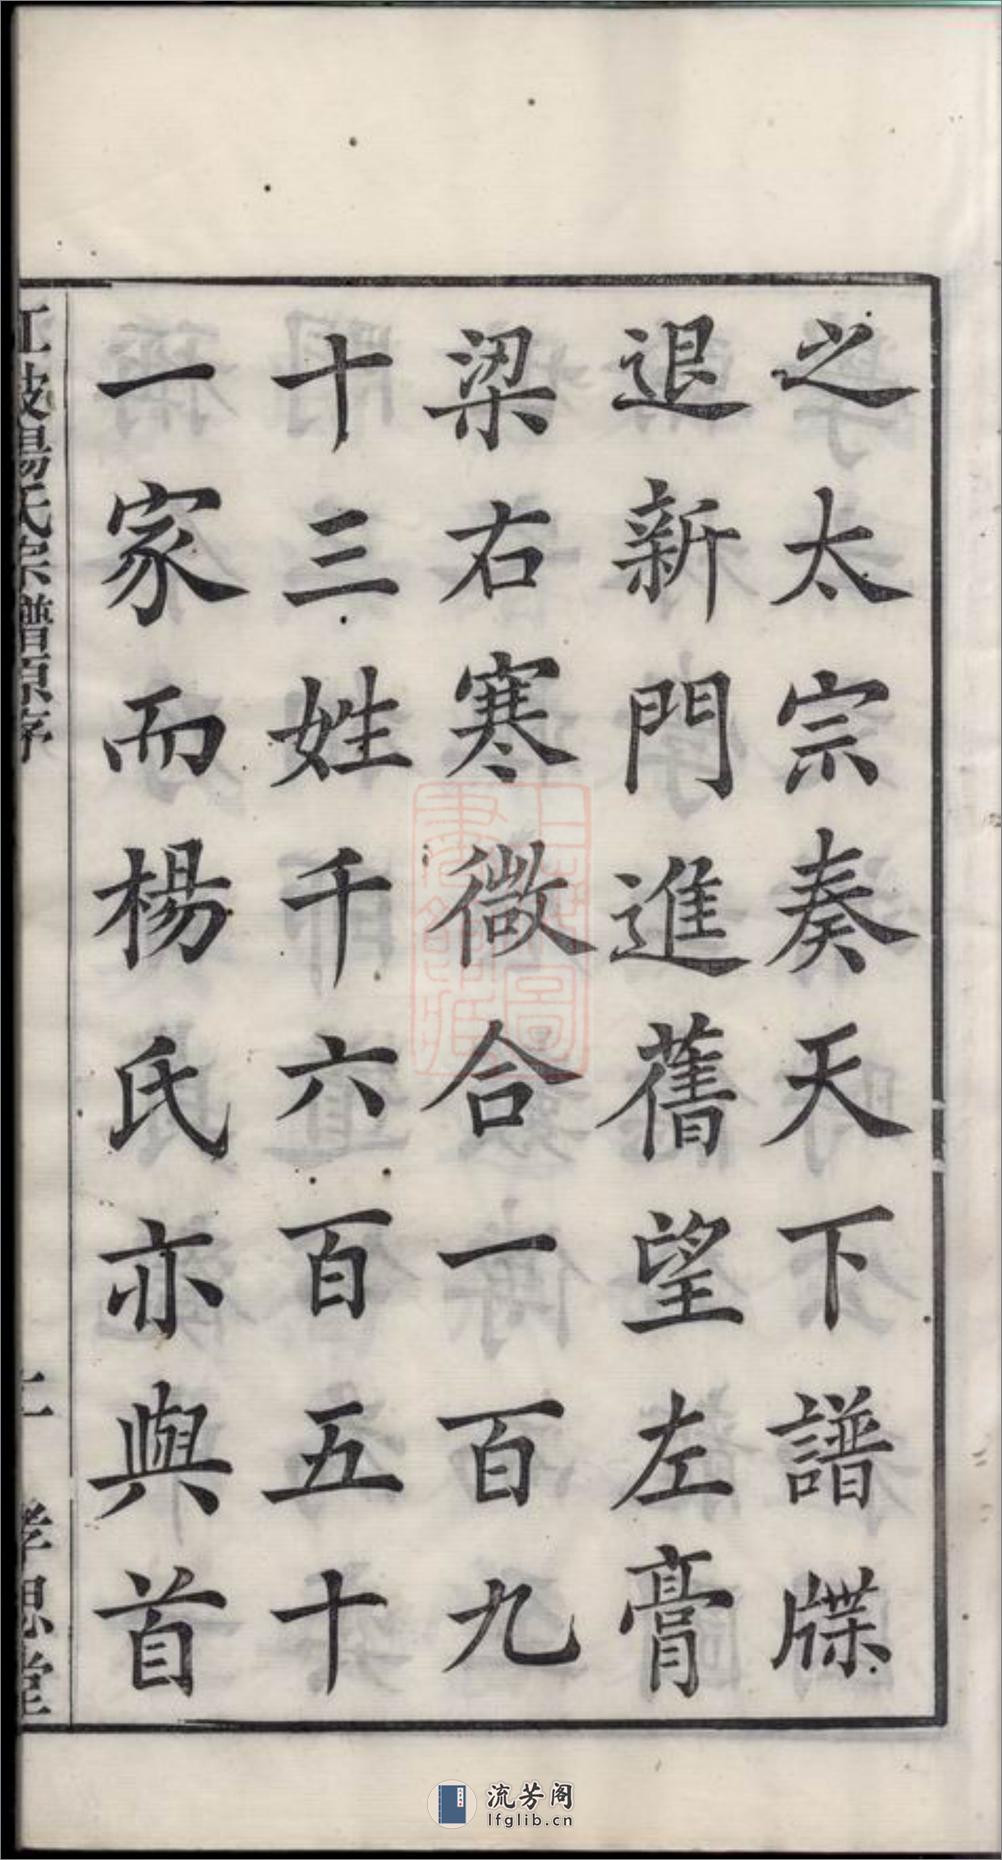 之太宗奏天下譜牒
退新門進舊望左膏
梁右寒微合一百九
十三姓千六百五十
一家而楊氏亦與首
楊氏宗譜原序
二 孝思堂
流芳阁
lfglib.cn